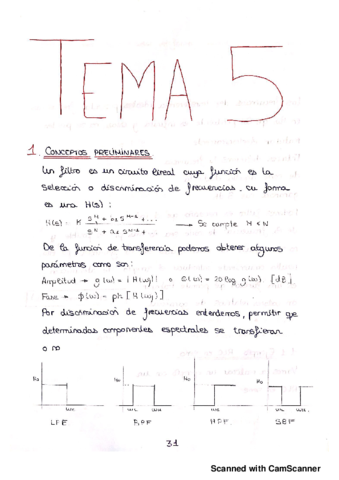 TEMA 5
1. CONCEPTOS PRELIMINARES
Un filtro es un circuito lineal cuya función es la
selección o discriminación de frecuencias. Su forma
es una H(s):
H(s) = K (S^M + a1 S^M-1 + ...) / (S^N + a1 S^N-1 + ...) → Se cumple M < N
De la función de transferencia podemos obtener algunos
parámetros como son:
Amplitud → g(ω) = |H(ωj)| o G(ω) = 20 log g(ω) [dB]
Fase → φ(ω) = ph[H(ωj)]
Por discriminación de frecuencias entendemos, permitir que
determinadas componentes espectrales se transfieran
o no
Ho Ho Ho Ho
LPF BPF HPF SBF
31
Scanned with CamScanner